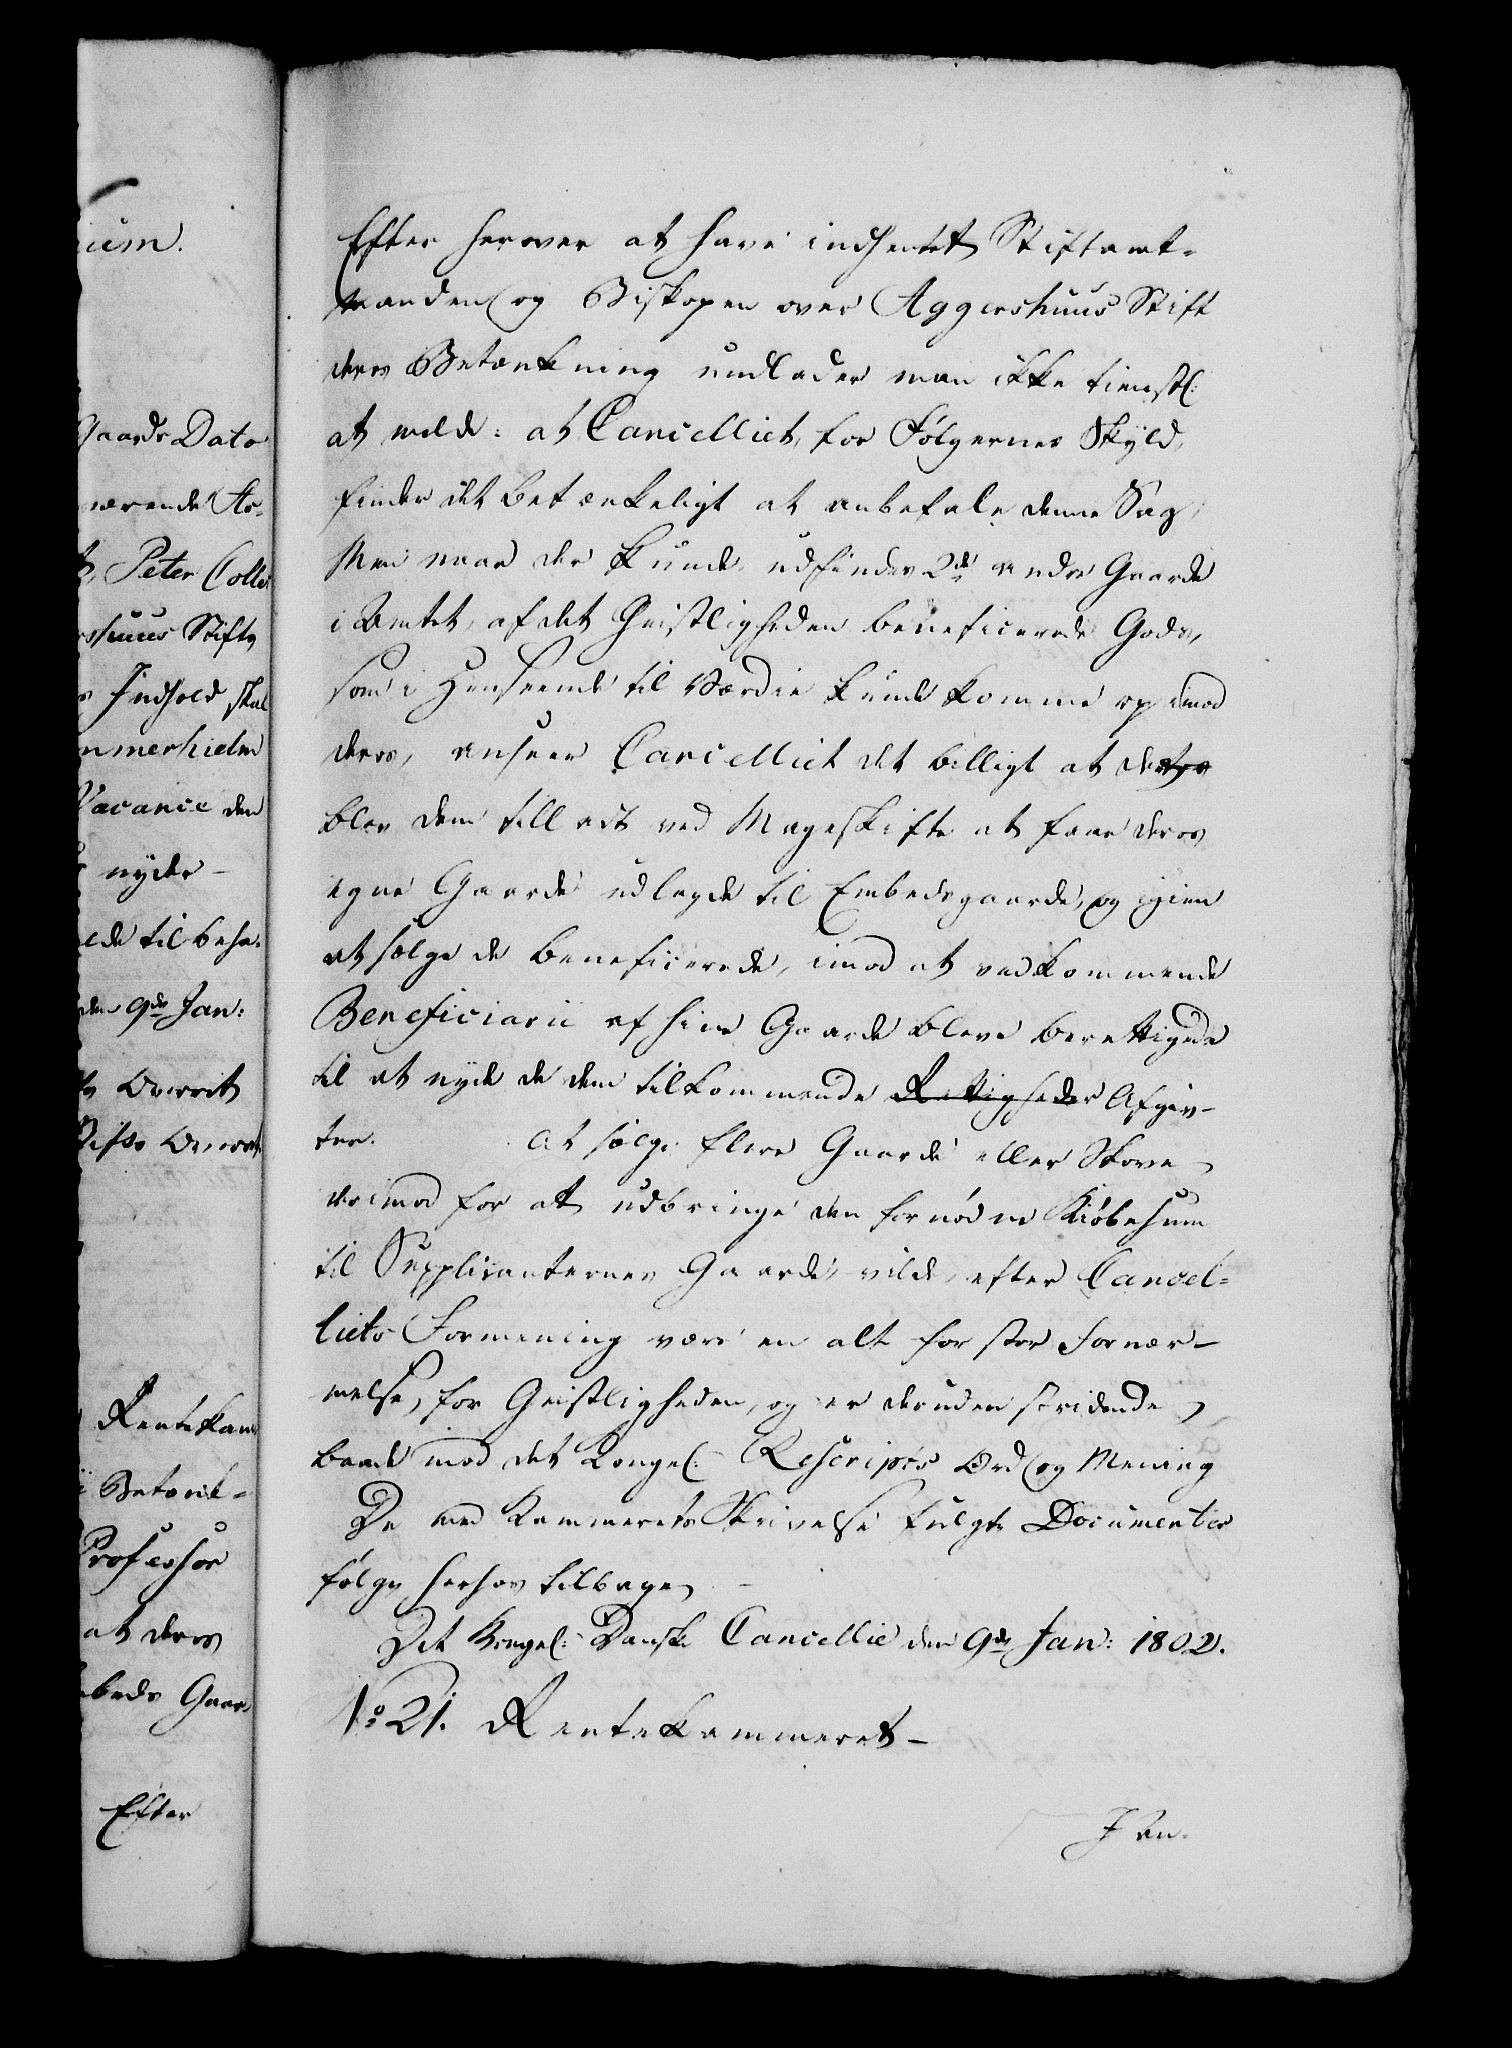 ium.
Gaards Dato
værende As-
t, Peter Colle
rshuus Stifts
s Indhold skal
nmerhielm
Vacance den
nyder -
lde til beha-
den 9de Jan:
Overret
Rentekam
Betænk=
Professor
at deres
mbeds Gaar
Efter
Efter herover at have indhentet Stiftamt-
manden og Biskopen over Aggershuus Stift
deres Betænkning undlader man ikke tienstl:
at melde: at Cancelliet, for Følgernes Skyld,
finder det betænkeligt at anbefale denne Sag,
Men naar der kunde udfindes 2de andre Gaarde
i Amtet, af det Geistligheden beneficerede Gods,
som i Henseende til Værdie kunde komme op imod
deres, anseer Cancelliet det billigt at det
blev dem tilladt ved Mageskifte at faae deres
egne Gaarde udlagde til Embedsgaarde, og igien
at sælge de beneficerede, imod at vedkommende
Beneficiarii af hine Gaarde bleve berettigede
til at nyde de dem tilkommende Rettigheder Afgiv-
ter. At sælge flere Gaarde eller Skove
derimod for at udbringe den fornødne Kiøbesum
til Supplicanternes Gaarde, vilde, efter Cancel=
liets Formening være en alt for stor Fornær-
melse, for Geistligheden, og er desuden stridende
baade imod det Kongel: Rescripts Ord og Mening
De med Kammerets Skrivelse fulgte Documenter
følge herhos tilbage
Det Kongel: Danske Cancellie den 9de Jan: 1802.
No 21. Rentekammeret -